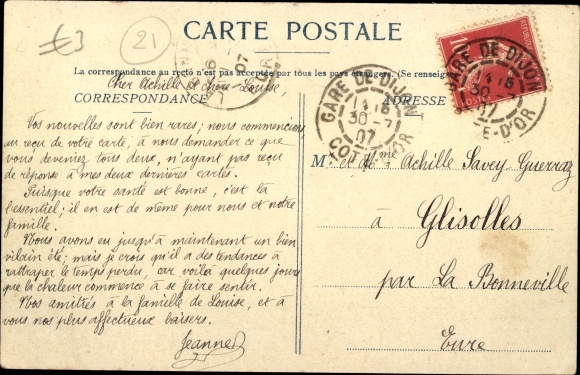 €3
21
CARTE POSTALE
La correspondance au recto n'est pas acceptée par tous les pays étrangers. (Se renseign
Cher Achille et chère Louise,
CORRESPONDANCE
ADRESSE
GARE DE DIJON
14 15
30 -7
07
COTE-D'OR
GARE DE DIJON
14 15
30
07
E-D'OR
10
07
Vos nouvelles sont bien rares; nous commencions
au reçu de votre carte, à nous demander ce que
vous deveniez tous deux, n'ayant pas reçu
de réponse à mes deux dernières cartes.
Puisque votre santé est bonne, c'est là
l'essentiel; il en est de même pour nous et notre
famille.
Nous avons eu jusqu'à maintenant un bien
vilain été; mais je crois qu'il a des tendances à
rattraper le temps perdu, car voilà quelques jours
que la chaleur commence à se faire sentir.
Nos amitiés à la famille de Louise, et à
vous nos plus affectueux baisers.
Jeanne
M. et Mme Achille Savey-Guerraz
à Glisolles
par La Bonneville
Eure